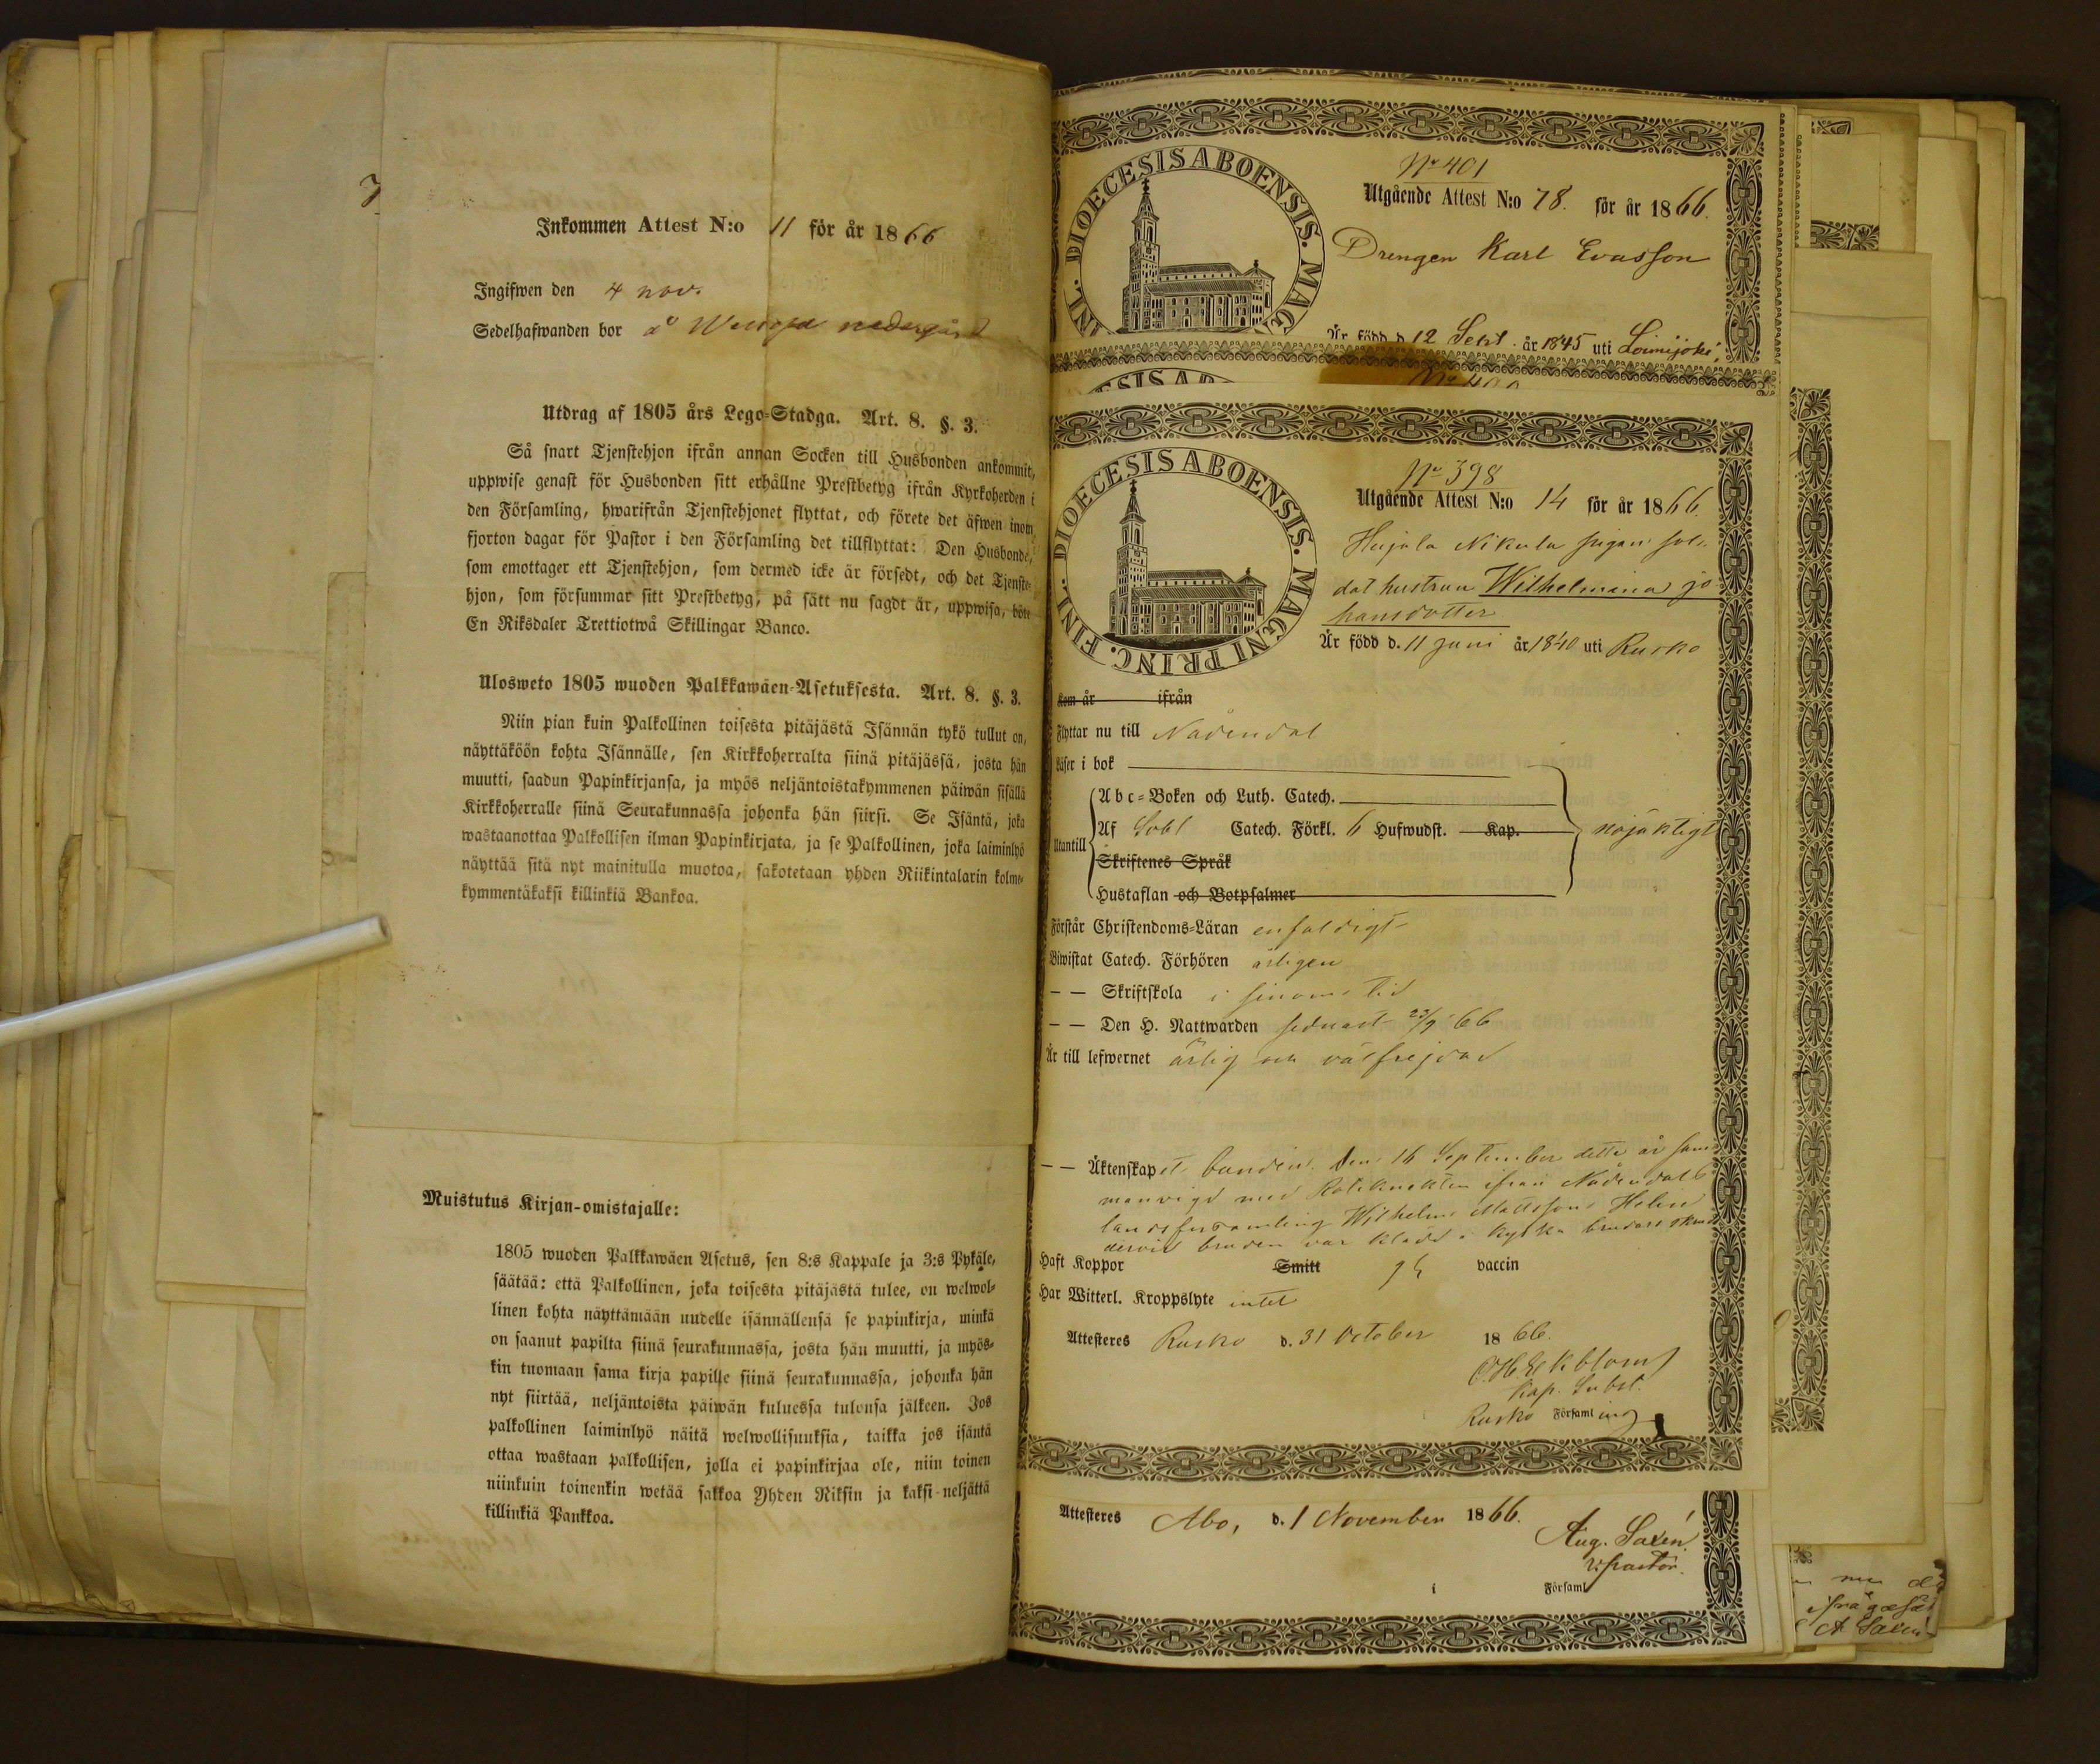 Inkommen Attest N:o 11 för år 1866
Ingifwen den 4 nov.
Sedelhafwanden bor å nedergård
Utdrag af 1805 års Lego-Stadga. Art. 8. §. 3.
Så snart Tjenstehjon ifrån annan Socken till Husbonden ankommit,
uppwise genast för Husbonden sitt erhållne Prestbetyg ifrån Kyrkoherden i
den Församling, hwarifrån Tjenstehjonet flyttat, och förete det äfwen inom
fjorton dagar för Pastor i den Församling det tillflyttat: Den Husbonde,
som emottager ett Tjenstehjon, som dermed icke är försedt, och det Tjenste-
hjon, som försummar sitt Prestbetyg, på sätt nu sagdt är, uppwisa, böte
En Riksdaler Trettiotwå Skillingar Banco.
Ulosweto 1805 wuoden Palkkawäen-Asetuksesta. Art. 8. §. 3.
Niin pian kuin Palkollinen toisesta pitäjästä Isännän tykö tullut on,
näyttäköön kohta Isännälle, sen Kirkkoherralta siinä pitäjässä, josta hän
muutti, saadun Papinkirjansa, ja myös neljäntoistakymmenen päiwän sisällä
Kirkkoherralle siinä Seurakunnassa johonka hän siirsi. Se Isäntä, joka
wastaanottaa Palkollisen ilman Papinkirjata, ja se Palkollinen, joka laiminlyö
näyttää sitä nyt mainitulla muotoa, sakotetaan yhden Riikintalarin kolme-
kymmentäkaksi killinkiä Bankoa.
Muistutus Kirjan-omistajalle:
1805 wuoden Palkkawäen Asetus, sen 8:s Kappale ja 3:s Pykäle,
säätää: että Palkollinen, joka toisesta pitäjästä tulee, on welwol-
linen kohta näyttämään uudelle isännällensä se papinkirja, minkä
on saanut papilta siinä seurakunnassa, josta hän muutti, ja myös-
kin tuomaan sama kirja papille siinä seurakunnassa, johonka hän
nyt siirtää, neljäntoista päiwän kuluessa tulonsa jälkeen. Jos
palkollinen laiminlyö näitä welwollisuuksia, taikka jos isäntä
ottaa wastaan palkollisen, jolla ei papinkirjaa ole, niin toinen
niinkuin toinenkin wetää sakkoa Yhden Riksin ja kaksi neljättä
killinkiä Pankkoa.
DIOECESIS ABOENSIS. MAG
No 401
Utgående Attest N:o 78. för år 1866.
Drengen Karl Evasson
Är född d. 12 Sept. år 1845 uti Loimijoki,
DIOECESIS ABOENSIS. MAGNI PRINC. FINL.
No 398
Utgående Attest N:o 14 för år 1866.
Heijola Nikula sol-
dat hustrun Wilhelmina Jo
hansdotter
Är född d. 11 Juni år 1840 uti Rusko
Kom år ifrån
Flyttar nu till Nådendal
Läser i bok
Utantill
Abc-Boken och Luth. Catech.
Af Sebl Catech. Förkl. 6 Hufwudst. Kap. nöjaktigt
Skriftenes Språk
Hustaflan och Botpsalmer
Förstår Christendoms-Läran enfaldigt
Biwistat Catech. Förhören årligen
— — Skriftskola i sinom tid
— — Den H. Nattwarden sednast 23/9 66
Är till lefwernet ärlig och välfrejdad
— — Äktenskapet bunden. Den 16 September detta år sam
manvigd med Roteknekten ifrån Nådendals
landsförsamling Wilhelm Mattsson Helin
dervid bruden var klädd i kyska brudars skrud
Haft Koppor Smitt vaccin
Har Witterl. Kroppslyte intet
Attesteres Rusko d. 31 October 1866.
Ekblom
Kap. Subst.
Rusko Församling
Attesteres Abo, d. 1 November 1866.
Aug. Saxén.
V: pastor.
i Församl